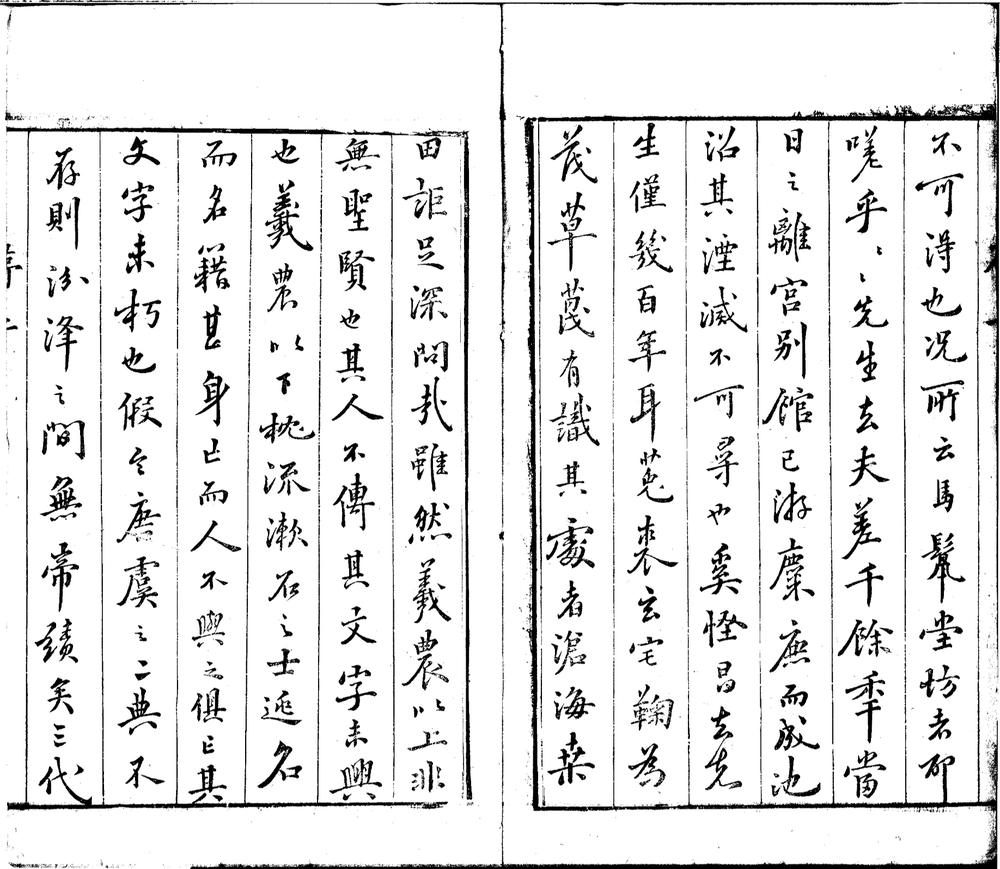 不可得也況所云馬鬣堂坊者耶
嗟乎〻先生去夫差千餘年當
日之離宮別館已游麋鹿而成池
沼其湮滅不可尋也奚怪昌去先
生僅幾百年耳菟裘玄宅鞠為
茂草蔑有識其處者滄海桑
田詎足深問哉雖然羲農以上非
無聖賢也其人不傳其文字未興
也羲農以下枕流漱石之士逃名
而名籍甚身亡而人不與之俱亡其
文字未朽也假令唐虞之二典不
存則汾澤之間無帝績矣三代